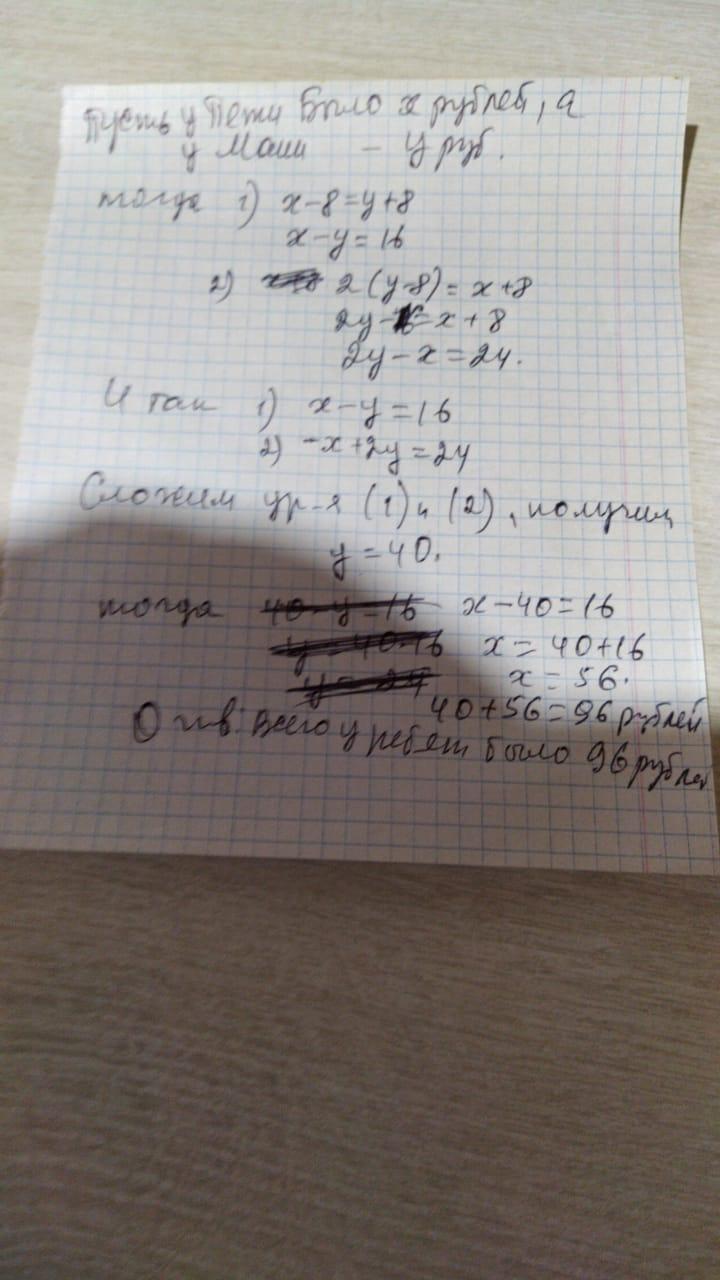 Пусть у Пети было x рублей, а
у Маши – y руб.
тогда 1) x-8=y+8
x-y=16
2) 2(y-8)=x+8
2y-16=x+8
2y-x=24.
И так 1) x-y=16
2) -x+2y=24
Сложим ур-я (1) и (2), получим
y=40.
тогда 40-y=16 x-40=16
y=40-16 x=40+16
y=24 x=56.
40+56=96 рублей
Ответ: всего у ребят было 96 рублей